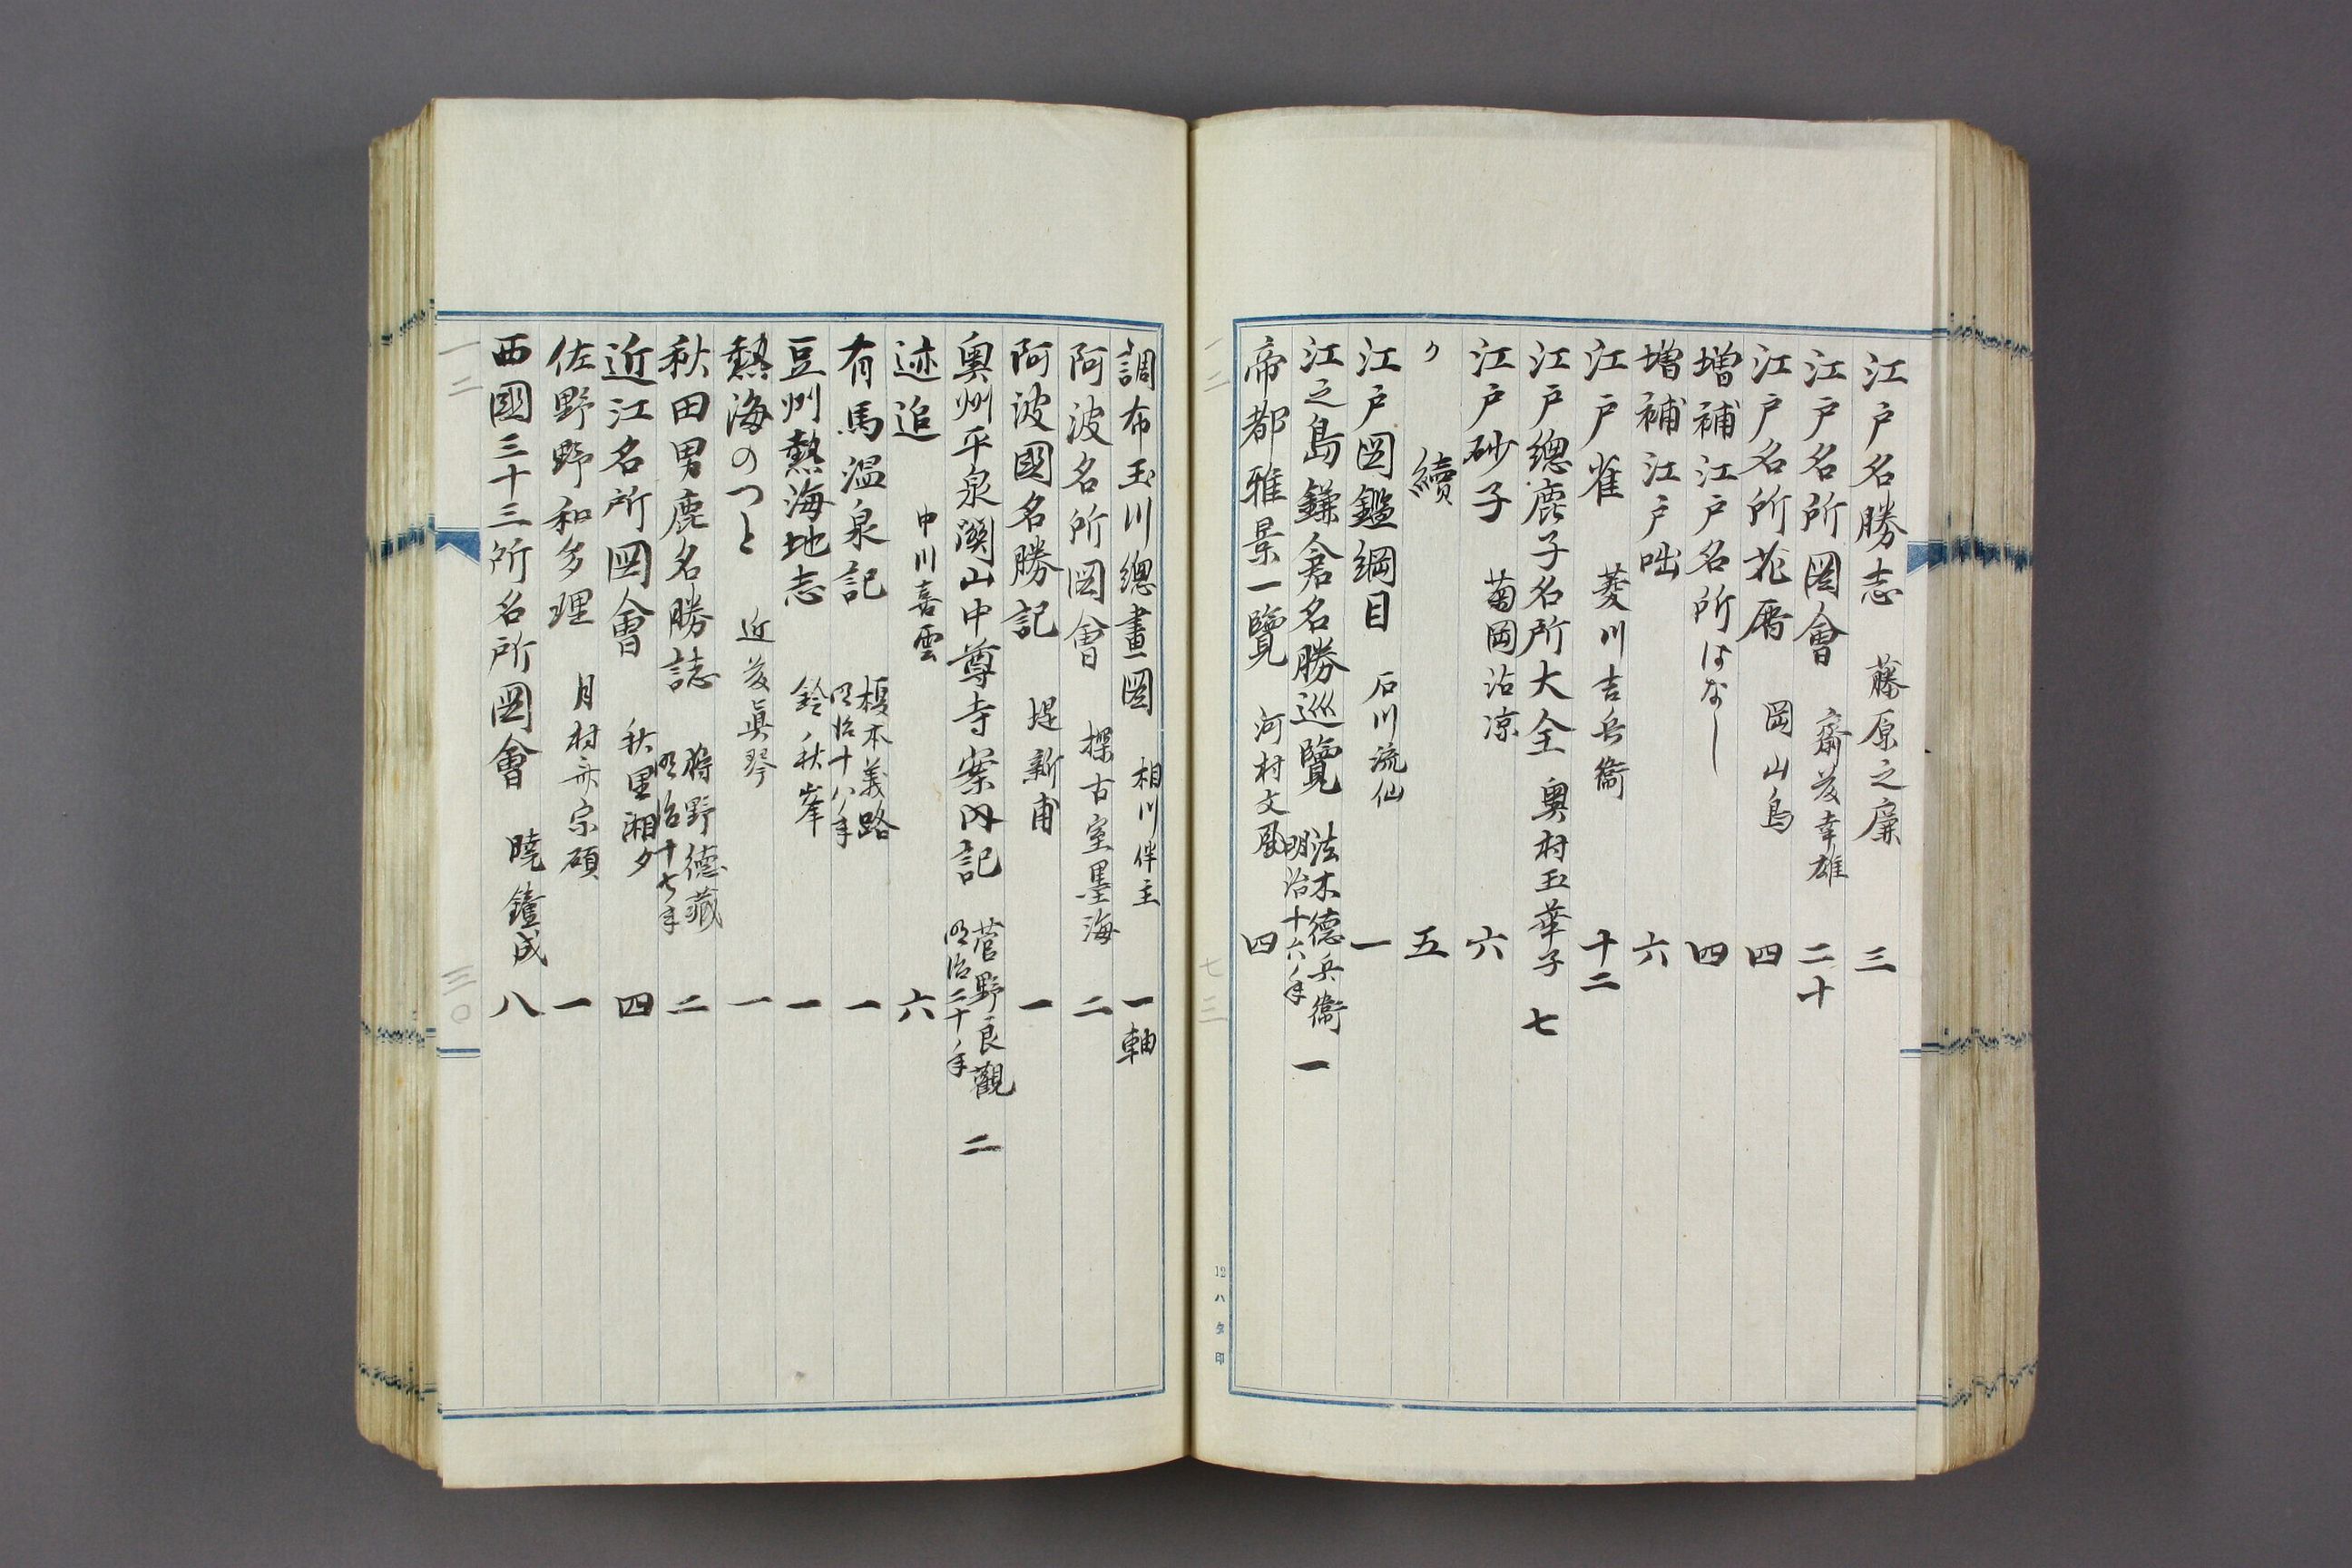 江戸名勝志 藤原之廉 三
江戸名所図會 齋藤幸雄 二十
江戸名所花暦 岡山鳥 四
増補江戸名所はなし 四
増補江戸咄 六
江戸雀 菱川吉兵衛 十二
江戸總鹿子名所大全 奥村玉華子 七
江戸砂子 菊岡沾凉 六
〃 續 五
江戸図鑑綱目 石川流仙 一
江之島鎌倉名勝巡覽 法木德兵衛 明治十六年 一
帝都雅景一覽 河村文鳳 四
一二
七三
12ハタ印
調布玉川總畫図 相川伴主 一軸
阿波名所図會 探古室墨海 二
阿波國名勝記 堤新甫 一
奥州平泉関山中尊寺案内記 菅野良觀 明治二十年 二
迹追 中川喜雲 六
有馬温泉記 榎本義路 明治十八年 一
豆州熱海地志 鈴秋峯 一
熱海のつと 近藤真琴 一
秋田男鹿名勝誌 狩野德藏 明治十七年 二
近江名所図會 秋里湘夕 四
佐野野和多理 月村斎宗碩 一
西國三十三所名所図會 曉鐘成 八
一二
三〇